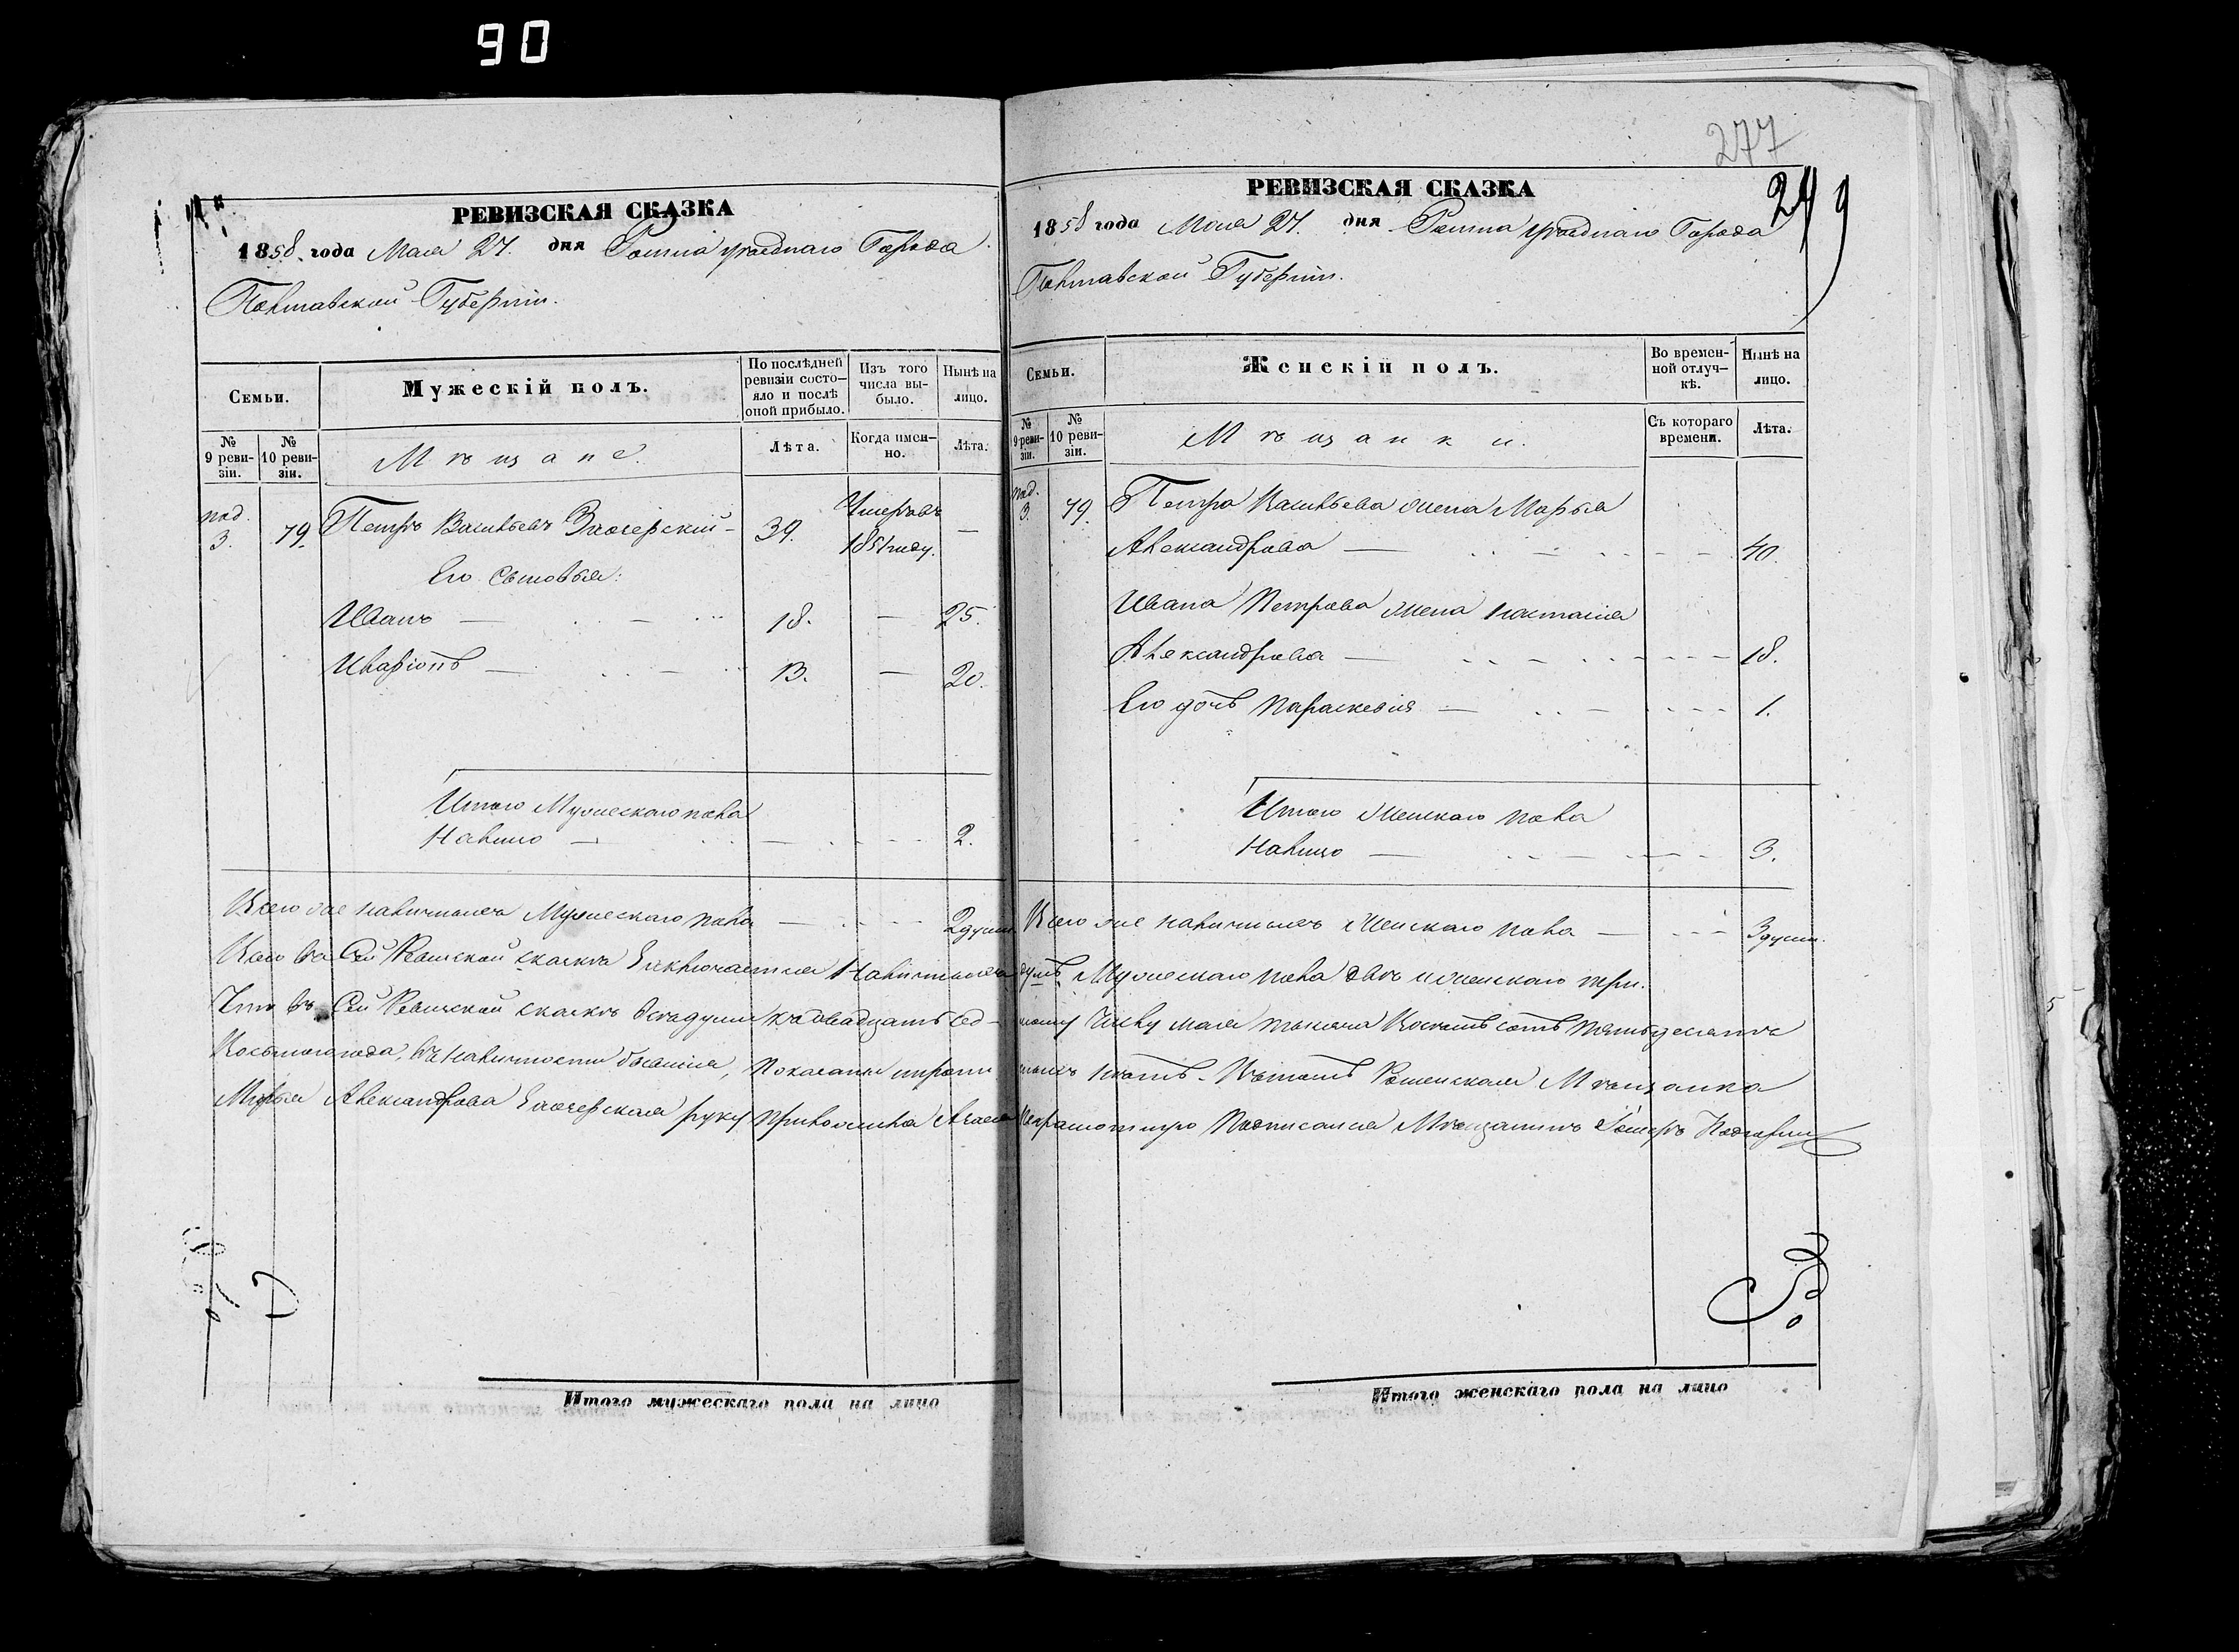 90
РЕВИЗСКАЯ СКАЗКА
1858. года Мая 27. дня Ромна уѣзднаго Города
Полтавской Губерніи.
Семьи.
Мужескій полъ.
По послѣдней ревизіи состояло и послѣ оной прибыло.
Изъ того числа выбыло.
Нынѣ на лицо.
№ 9 ревизіи.
№ 10 ревизіи.
Мѣщане.
Лѣта.
Когда именно.
Лѣта.
под. 3. 79. Петръ Васильевъ 39. Умеръ въ 1851 году. —
Его Сыновья:
Иванъ — 18. — 25.
Иларіонъ — 13. — 20.
Итого Мужескаго пола
Налицо — 2.
Всего же наличныхъ Мужескаго пола — 2 души
277
249
РЕВИЗСКАЯ СКАЗКА
1858 года Мая 27. дня Ромна уѣзднаго Города
Полтавской Губерніи.
Семьи.
Женскій полъ.
Во временной отлучкѣ.
Нынѣ на лицо.
№ 9 ревизіи.
№ 10 ревизіи.
Мѣщанки.
Съ котораго времени.
Лѣта.
под. 3. 79. Петра Васильева жена Марья
Александрова — 40.
Ивана Петрова жена Настасія
Александрова — 18.
Его дочь Параскевія — 1.
Итого женскаго пола
Налицо — 3.
Всего же наличныхъ Женскаго пола — 3 души.
Всего въ Сей Ревизской сказкѣ заключается Наличныхъ душъ Мужескаго пола двѣ и женскаго три.
Что въ Сей Ревизской сказкѣ всѣ души къ двадцать седьмому Числу мая тысяча Восемь сотъ пятьдесятъ
Восьмого года, въ наличности бывшія, Показаны и нѣтъ. Въ томъ Роменская Мѣщанка
Марья Александрова руку приложила А за нея неграмотную Подписался Мѣщанинъ
Итого мужескаго пола на лицо
Итого женскаго пола на лицо